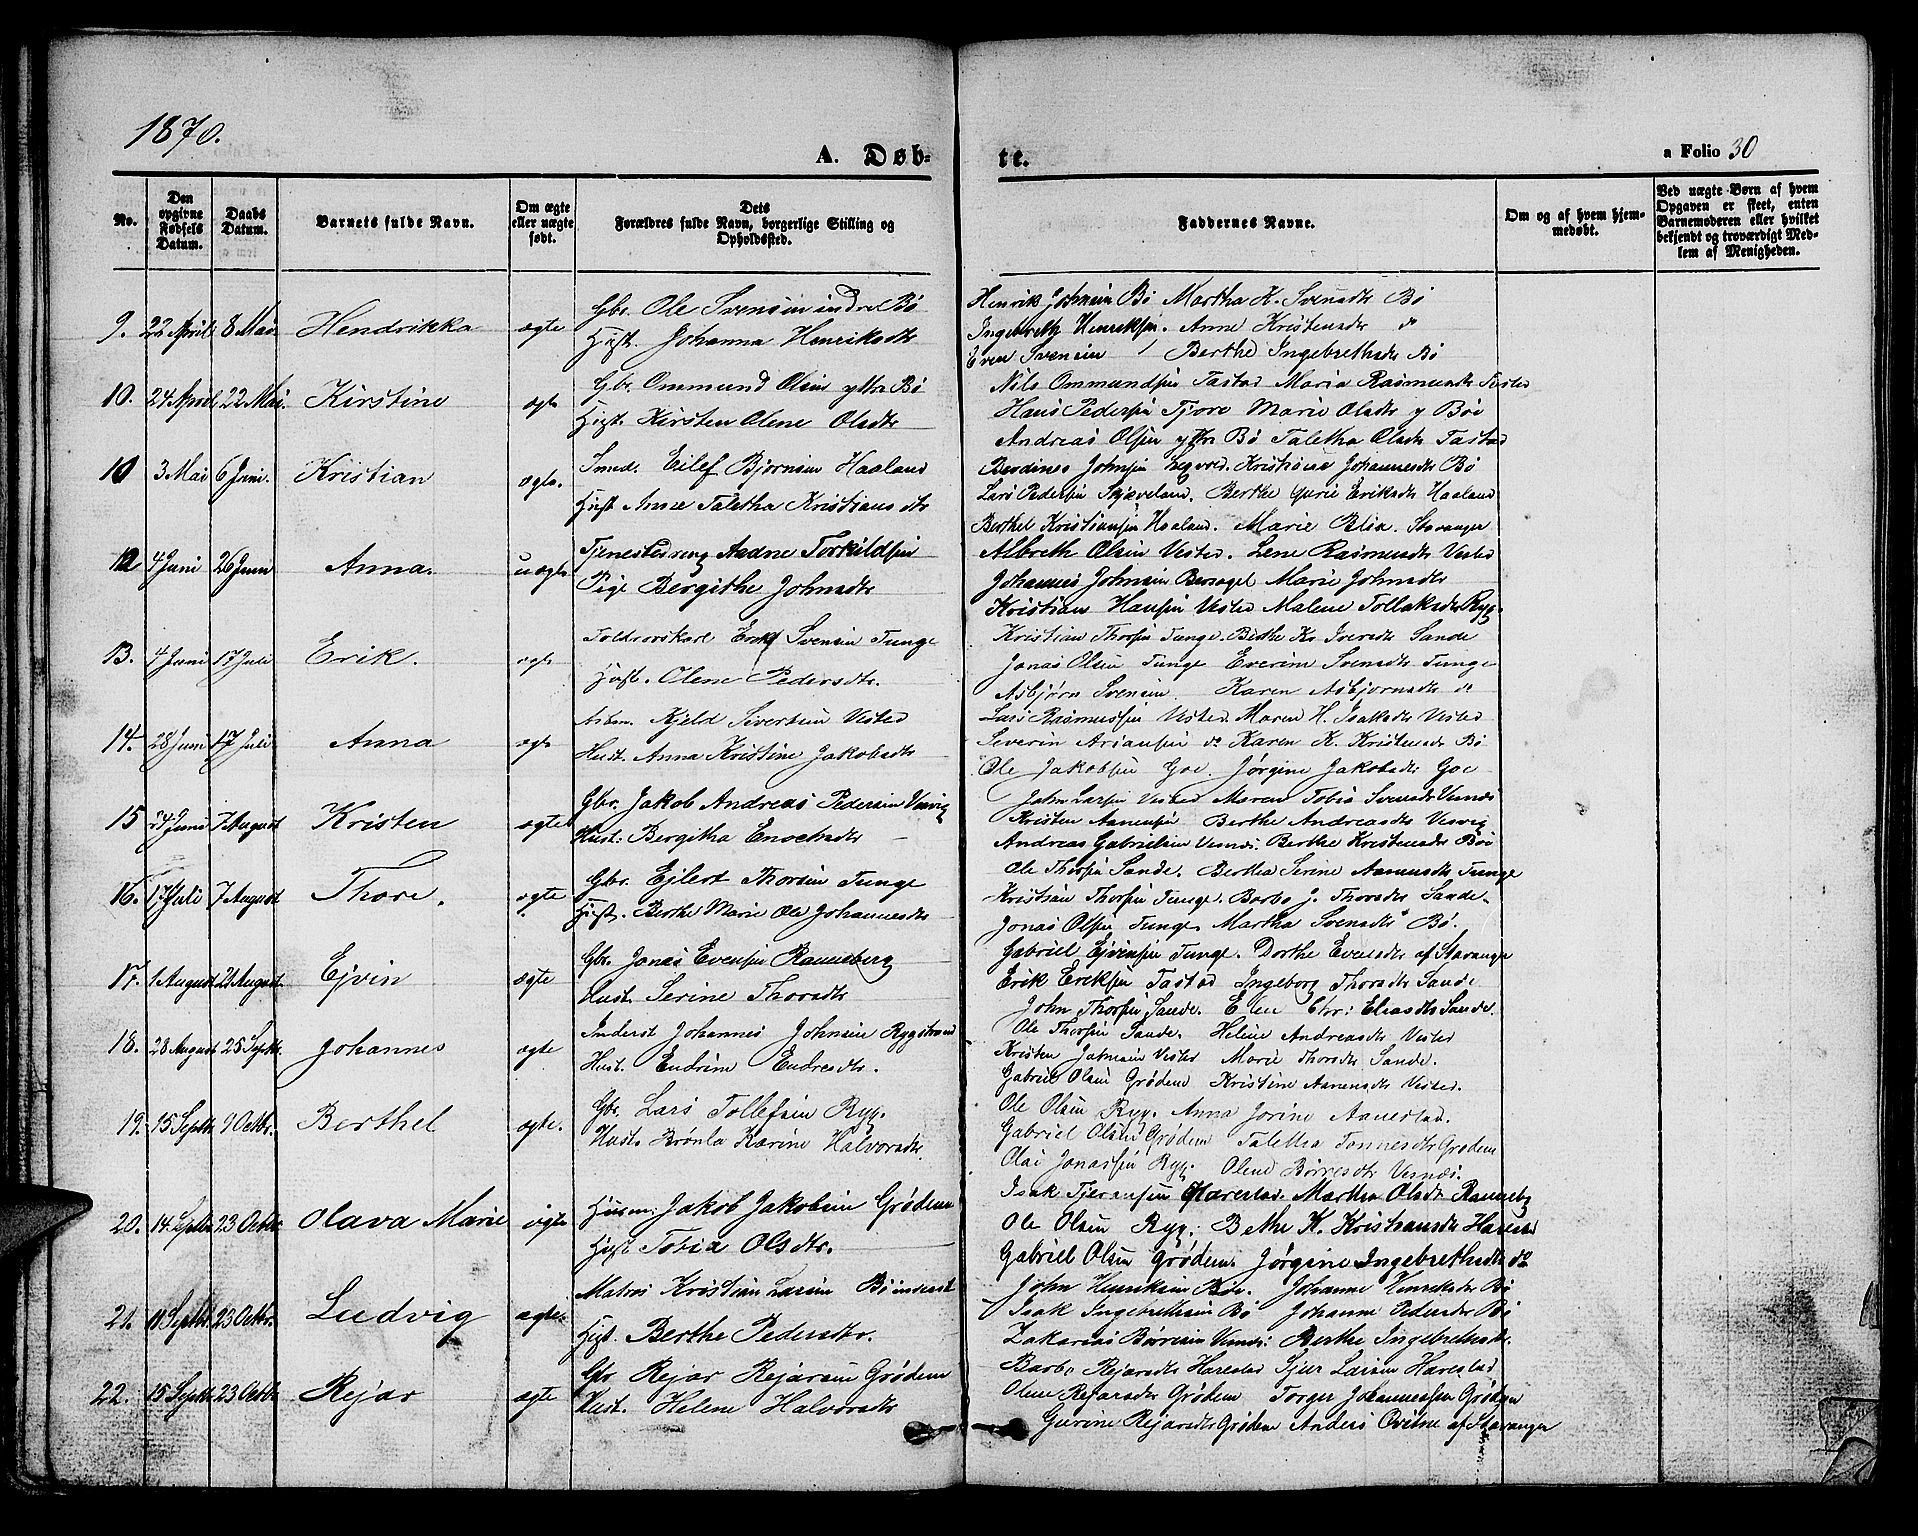 1870.
A. Døb-
te.
a Folio 30
No.
Den opgivne Fødsels Datum.
Daabs Datum.
Barnets fulde Navn.
Om ægte eller uægte født.
Dets Forældres fulde Navn, borgerlige Stilling og Opholdssted.
Faddernes Navne.
Om og af hvem hjemmedøbt.
Ved uægte Børn af hvem Opgaven er skeet, enten Barnemoderen eller hvilket bekjendt og troværdigt Medlem af Menigheden.
9. 22 April 8 Mai Hendrikka ægte
Gbr. Ole Svensen indre Bø
Hust. Johanna Henriksdtr
Henrik Johnsen Bø Martha K. Svensdtr Bø
Ingebreth Henriksen. Anne Kristensdtr do
Even Svensen Berthe Ingebrethsdtr Bø
10. 24 April 22 Mai. Kirstine ægte
Gbr. Ommund Olsen yttre Bø
Hust. Kirsten Olene Olsdtr
Nils Ommundsen Tastad Maria Rasmusdtr Tasted
Hans Pedersen Tjore Marie Olsdtr y Bøe
Andreas Olsen yttre Bø Taletha Olsdtr Tastad
3 Mai 6 Juni. Kristian ægte.
Smed. Eilef Bjørnsen Haaland
Hust Anne Taletha Kristiansdtr
Berdines Johnsen Kristiane Johannesdtr Bø
Lars Pedersen Skjæveland. Berthe Gurie Eriksdtr Haaland
Berthel Kristiansen Haaland. Marie Stavanger
12 4 Juni 26 Juni Anna. uægte
Tjenestedreng Aadne Torkildsen
Pige Bergithe Johnsdtr
Albreth Olsen Vested. Lene Rasmusdtr Vested
Johannes Johnsen Marie Johnsdtr
Kristian Hansen Vested Malene Tollaksdtr Ryg.
13. 4 Juni 17 Juli Erik. ægte
Svensen Tunge
Hust. Olene Pedersdtr.
Kristian Thorsen Tunge. Berthe K. Iversdtr Sande
Jonas Olsen Tunge Everine Svensdtr Tunge
Asbjørn Svensen Karen Asbjørnsdtr do
14. 28 Juni 17 Juli Anna ægte
Kjeld Sivertsen Vested
Hust. Anna Kristine Jakobsdtr
Lars Rasmussen Vested. Maren H. Isaksdtr Vested
Severin Ariansen do Karen K. Kristensdtr Bø
Ole Jakobsen Goe. Jørgine Jakobsdtr Goe
15 24 Juni 7 August Kristen ægte
Gbr. Jakob Andreas Pedersen Visvig
Hust: Bergitha Enochsdtr
John Larsen Vested Maren Tobia Svensdtr Visnæs
Kristen Aanensen Berthe Andreasdtr Visvig
Andreas Gabrielsen Visnæs. Berthe Kristensdtr Bøe
16. 17 Juli 7 August Thore. ægte
Gbr. Ejlert Thorsen Tunge
Hust. Berthe Marie Ole Johannesdtr
Ole Thorsen Sande. Bertha Serine Aanensdtr Tunge
Kristian Thorsen Tunge. Barbo J. Thoresdtr Sande.
Jonas Olsen Tunge Martha Svensdtr Bø.
17. 1 August 21 August. Ejvin ægte
Gbr. Jonas Evensen Ranneberg
Hust. Serine Thorsdtr
Gabriel Ejvensen Tunge. Dorthe Evensdtr af Stavanger
Erik Eriksen Tastad Ingeborg Thorsdtr Sande
John Thorsen Sande. Elen Chr: Eliasdtr Sande.
18. 28 August 25 Septbr. Johannes ægte
Inderst Johannes Johnsen Rygstrand
Hust. Endrine Endresdtr.
Ole Thorsen Sande. Helene Andreasdtr Vested
Kristen Johnsen Vested Marie Thorsdtr Sande.
Gabriel Olsen Grødem Kristine Aanensdtr Vested.
19. 15 Septbr 9 Octbr. Berthel ægte.
Gbr. Lars Tollefsen Ryg.
Hust. Brønla Karine Halvorsdtr.
Ole Olsen Ryg. Anna Jorine Aanestad.
Gabriel Olsen Grødem Taletha Tønnesdtr Grødem
Olai Jonassen Ryg. Olene Børresdtr Visnæs.
20. 14 Septbr 23 Octbr Olava Marie ægte
Husm: Jakob Jakobsen Grødem
Hust Tobia Olsdtr.
Isak Tjeransen Harestad. Martha Olsdtr Ranneberg
Ole Olsen Ryg: Bethe K. Kristiansdtr Harestad
Gabriel Olsen Grødem. Jørgine Ingebrethsdtr do
21. 11 Septbr. 23 Octbr. Ludvig ægte
Matros Kristian Larsen Bø inderst
Hust. Berthe Pedersdtr.
John Henriksen Bøe. Johanne Henriksdtr Bø
Isak Ingebrethsen Bø Johanne Pedersdtr Bø
Zakarias Børresen Visnæs: Berthe Ingebrethsdtr.
22. 15 Septbr. 23 Octbr Rejar ægte
Gbr Rejar Rejarsen Grødem
Hust. Helene Halvorsdtr
Barbo Rejarsdtr Harestad Sjur Larsen Harestad
Oline Rejarsdtr Grødem Torger Johannessen Grødem
Gurine Rejarsdtr Grødem Anders Qvitne af Stavanger